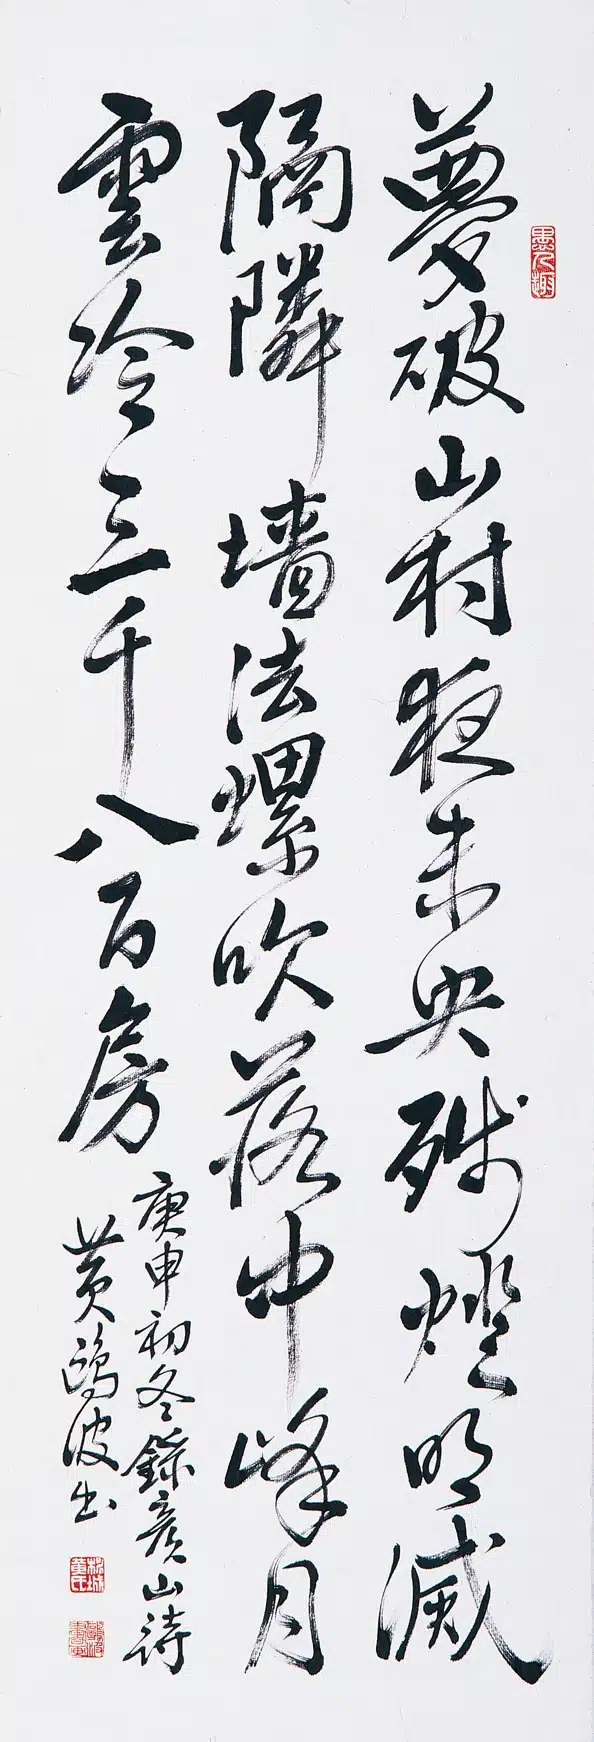 夢破山村夜未央殘燈明滅
隔隣墻法螺吹落中峰月
雲冷三千八百房
庚申初冬錄彥山詩
黃鷗波書
墨人趣